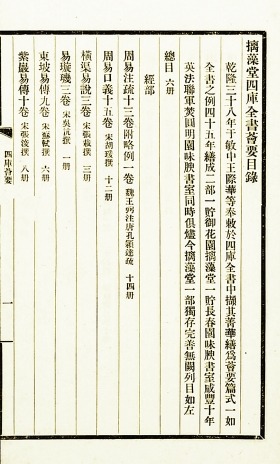 摛藻堂四庫全書薈要目錄
乾隆三十八年于敏中王際華等奉敕於四庫全書中擷其菁華繕爲薈要篇式一如
全書之例四十五年繕成二部一貯御花園摛藻堂一貯長春園味腴書室咸豐十年
英法聯軍焚圓明園味腴書室同時俱燼今摛藻堂一部獨存完善無闕列目如左
總目 六册
經部
周易注疏十三卷附略例一卷 魏王弼注唐孔穎達疏 十四册
周易口義十五卷 宋胡瑗撰 十二册
橫渠易說三卷 宋張載撰 三册
易璇璣三卷 宋吳沆撰 一册
東坡易傳九卷 宋蘇軾撰 六册
紫巖易傳十卷 宋張浚撰 八册
四庫薈要
一